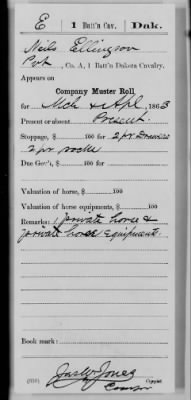 E 1 Batt'n Cav. Dak.
Neils Ellingson
Pvt, Co. A, 1 Batt'n Dakota Cavalry.
Appears on
Company Muster Roll
for Mch & Apl, 1863
Present or absent Present
Stoppage, $ 100 for 2 pr Drawers
2 pr socks
Due Gov't, $ 100 for
Valuation of horse, $ 100
Valuation of horse equipments, $ 100
Remarks: 1 private horse &
private horse equipments.
Book mark:
Jas W Jones
(858) Copyist.